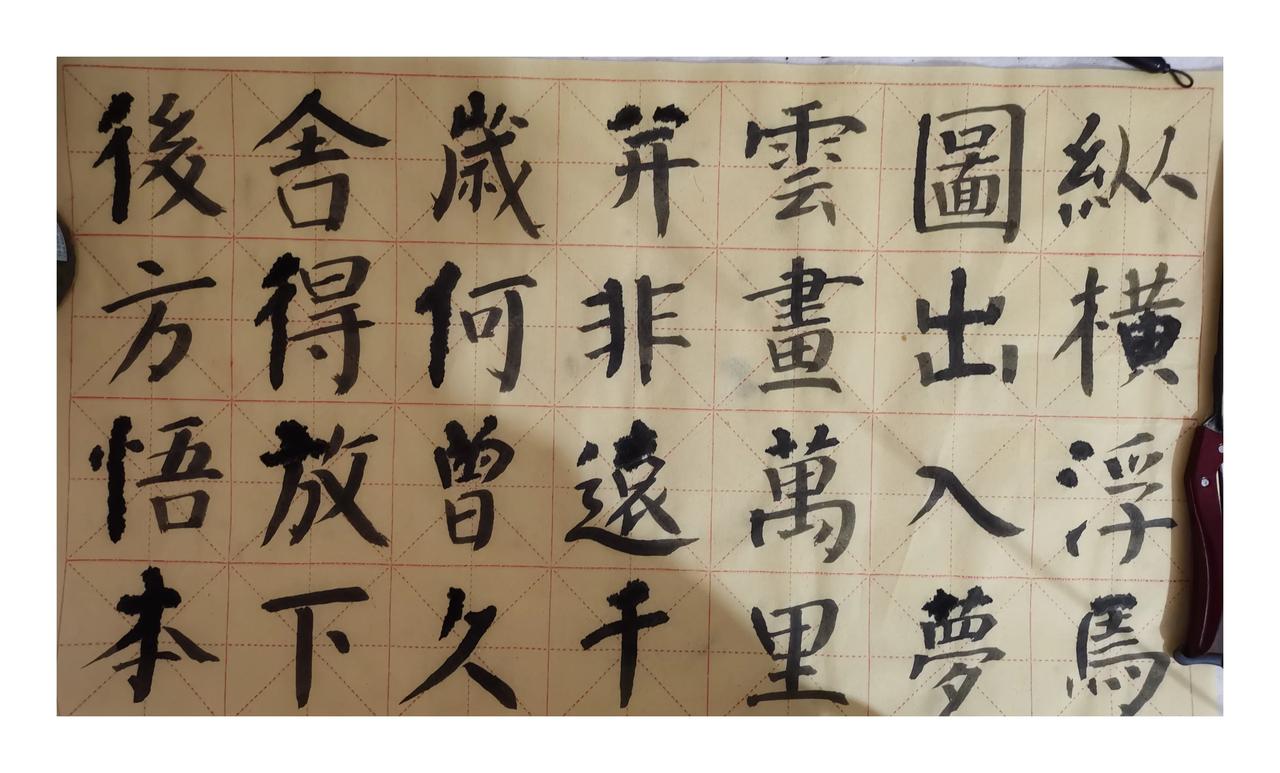 縱橫浮馬
圖出入夢
雲畫萬里
并非遠千
歲何曾久
舍得放下
後方悟本